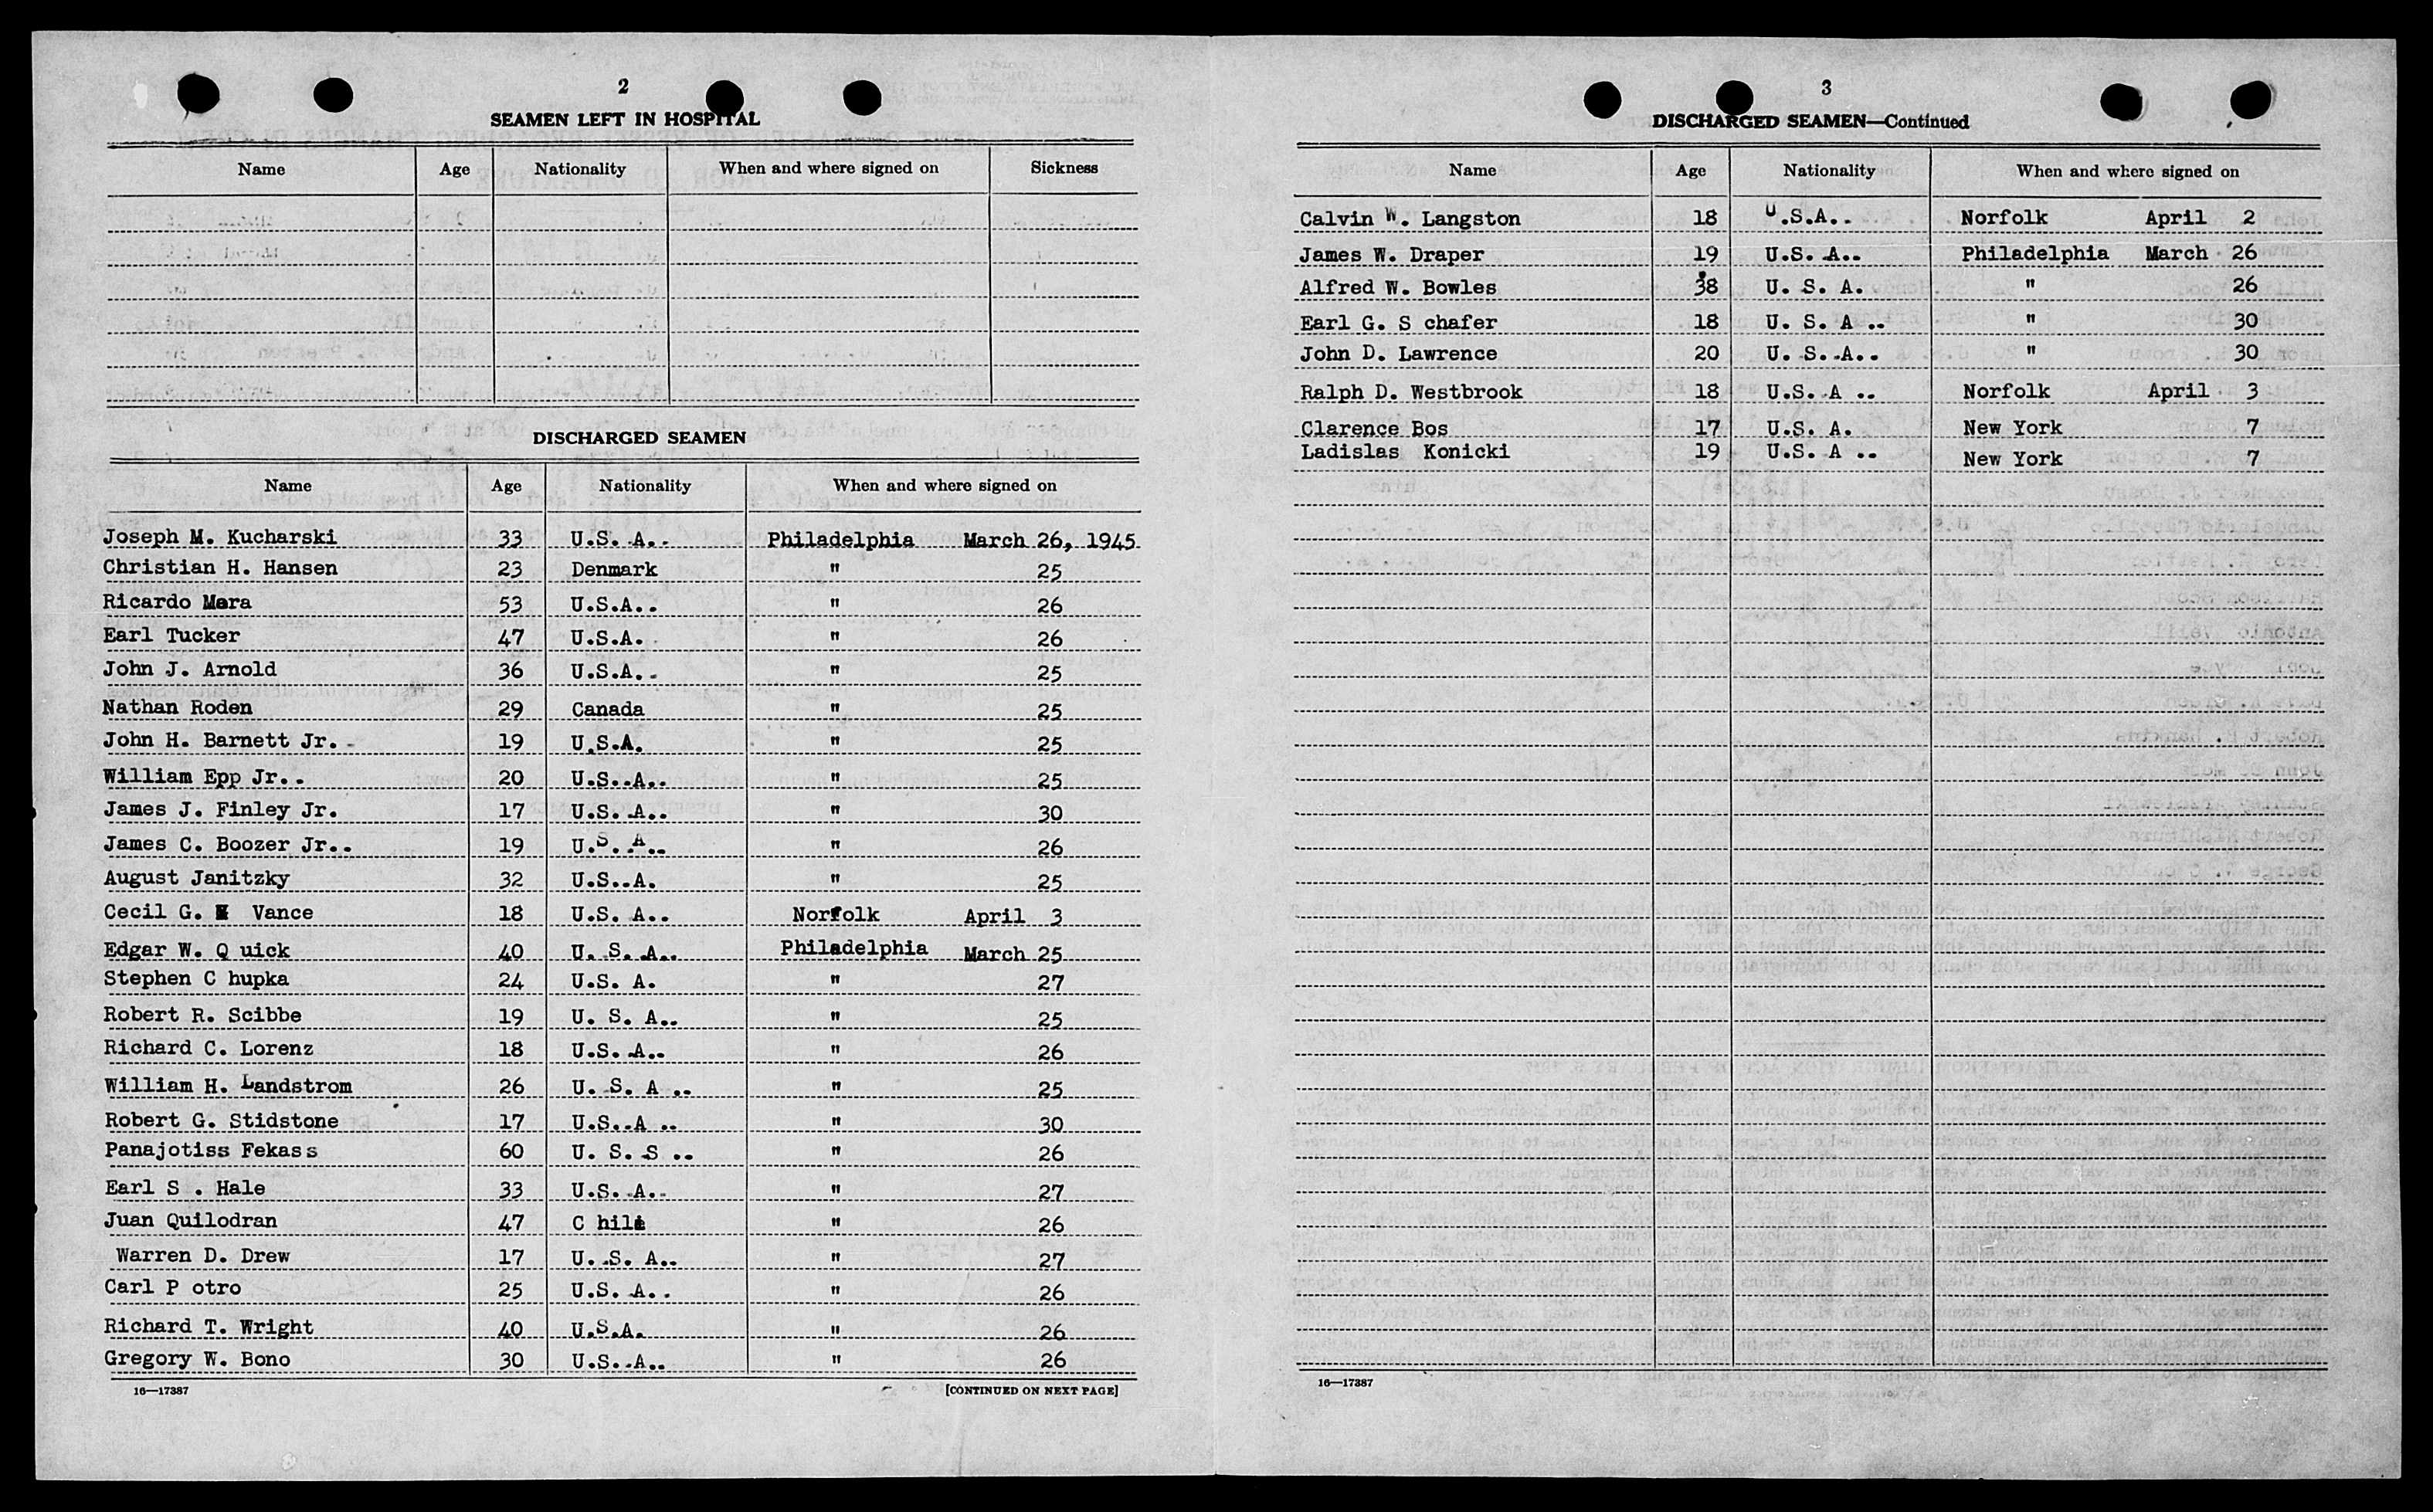 2
SEAMEN LEFT IN HOSPITAL
Name Age Nationality When and where signed on Sickness
DISCHARGED SEAMEN
Name Age Nationality When and where signed on
Joseph M. Kucharski 33 U.S. A.. Philadelphia March 26, 1945
Christian H. Hansen 23 Denmark " 25
Ricardo Mera 53 U.S.A.. " 26
Earl Tucker 47 U.S.A. " 26
John J. Arnold 36 U.S.A.. " 25
Nathan Roden 29 Canada " 25
John H. Barnett Jr. 19 U.S.A. " 25
William Epp Jr.. 20 U.S..A.. " 25
James J. Finley Jr. 17 U.S. A.. " 30
James C. Boozer Jr.. 19 U.S. A.. " 26
August Janitzky 32 U.S..A. " 25
Cecil G. Vance 18 U.S. A.. Norfolk April 3
Edgar W. Q uick 40 U. S. A.. Philadelphia March 25
Stephen C hupka 24 U.S. A. " 27
Robert R. Scibbe 19 U. S. A.. " 25
Richard C. Lorenz 18 U.S. A.. " 26
William H. Landstrom 26 U. S. A .. " 25
Robert G. Stidstone 17 U.S..A .. " 30
Panajotiss Fekass 60 U. S. S .. " 26
Earl S . Hale 33 U.S. A.. " 27
Juan Quilodran 47 C hile " 26
Warren D. Drew 17 U. .S. A.. " 27
Carl P otro 25 U.S. A.. " 26
Richard T. Wright 40 U.S.A. " 26
Gregory W. Bono 30 U.S..A.. " 26
16—17387 [CONTINUED ON NEXT PAGE]
3
DISCHARGED SEAMEN—Continued
Name Age Nationality When and where signed on
Calvin W. Langston 18 U.S.A.. Norfolk April 2
James W. Draper 19 U.S. A.. Philadelphia March 26
Alfred W. Bowles 38 U. S. A. " 26
Earl G. S chafer 18 U. S. A .. " 30
John D. Lawrence 20 U. S..A.. " 30
Ralph D. Westbrook 18 U.S. A .. Norfolk April 3
Clarence Bos 17 U.S. A. New York 7
Ladislas Konicki 19 U.S. A .. New York 7
16—17387